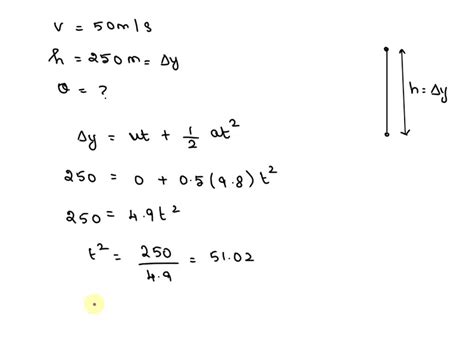 v = 50m/s
h = 250m = Δy
θ = ?
h = Δy
Δy = ut + 1/2 at²
250 = 0 + 0.5(9.8)t²
250 = 4.9t²
t² = 250/4.9 = 51.02